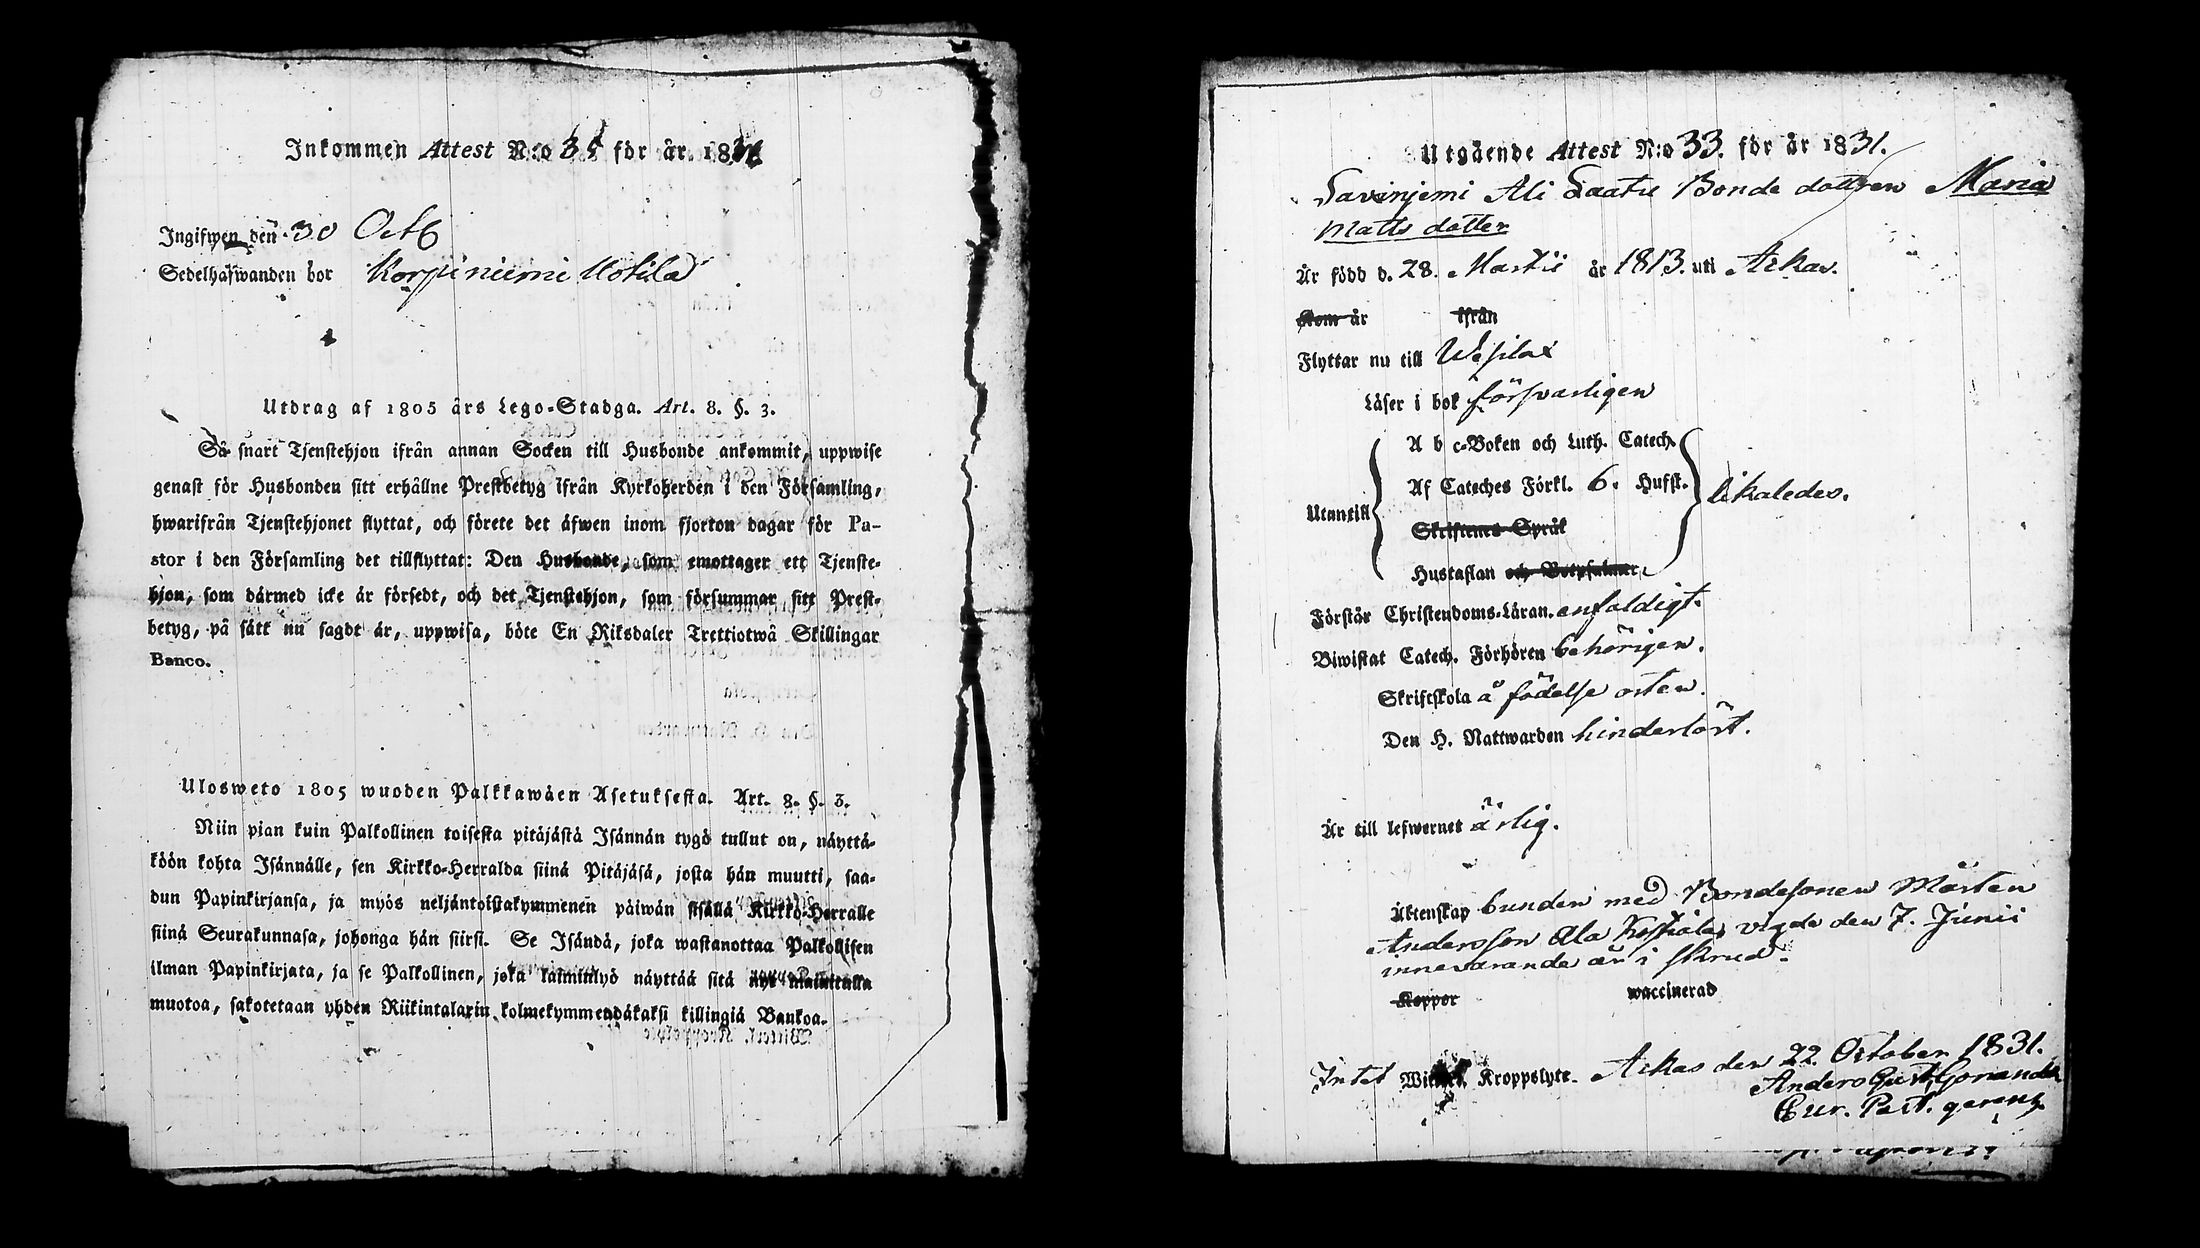 Inkommen Attest N:o 35 för år 1831
Ingifwen den 30 Octb
Sedelhafwanden bor Korpiniemi Uotila
Utdrag af 1805 års Lego-Stadga. Art. 8. §. 3.
Så snart Tjenstehjon ifrån annan Socken till Husbonde ankommit, uppwise
genast för Husbonden sitt erhållne Prestbetyg ifrån Kyrkoherden i den Församling,
hwarifrån Tjenstehjonet flyttat, och förete det äfwen inom fjorton dagar för Pa-
stor i den Församling det tillflyttat: Den Husbonde, som emottager ett Tjenste-
hjon, som därmed icke är försedt, och det Tjenstehjon, som försummar sitt Prest-
betyg, på sätt nu sagdt är, uppwisa, böte En Riksdaler Trettiotwå Skillingar
Banco.
Ulosweto 1805 wuoden Palkkawäen Asetuksesta. Art. 8. §. 3.
Niin pian kuin Palkollinen toisesta pitäjästä Isännän tygö tullut on, näyttä-
köön kohta Isännälle, sen Kirkko-Herralda siinä Pitäjäsä, josta hän muutti, saa-
dun Papinkirjansa, ja myös neljäntoistakymmenen päiwän sisällä Kirkko-Herralle
siinä Seurakunnasa, johonga hän siirsi. Se Isändä, joka wastanottaa Palkollisen
ilman Papinkirjata, ja se Palkollinen, joka laiminlyö näyttää sitä nyt mainitulla
muotoa, sakotetaan yhden Riikintalarin kolmekymmendäkaksi killingiä Bankoa.
Utgående Attest N:o 33. för år 1831.
Savinjemi Ali Laatu Bonde dottren Maria
Matts dotter
Är född d. 28. Martii år 1813. uti Ackas.
Kom år ifrån
Flyttar nu till Wesilax
Läser i bok försvarligen
A b c-Boken och Luth. Catech.
Utantill Af Cateches Förkl. 6. Hufst. likaledes.
Skriftenes Språk
Hustaflan och Botpsalmer,
Förstår Christendoms-Läran. enfaldigt.
Biwistat Catech. Förhören behörigen.
Skriftskola å födelse orten.
Den H. Nattwarden hinderlöst.
Är till lefwernet ärlig.
Äktenskap bunden med Bondesonen Mårten
Andersson Ala Koskiala, vigde den 7. Junii
innevarande år i skrud.
Koppor waccinerad
Intet Kroppslyte. Ackas den 22 October 1831.
Anders Gust. Gonander
Cur. Past. gerens